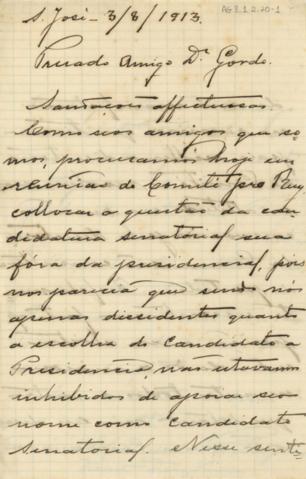 AG3.1.2.20-1
S. José - 3/8/1913.
Presado Amigo Dr Gordo.
Saudações affectuosas.
Como seos amigos que so-
mos, procuramos hoje em
reunião do Comité pro Ruy
collocar a questão da can-
didatura senatorial sua
fóra da presidencial, pois
nos parecia que sendo nós
apenas dissidentes quanto
a escolha do candidato a
Presidencia, não estavamos
inhibidos de apoiar seo
nome como candidato
Senatorial. Nesse senti-